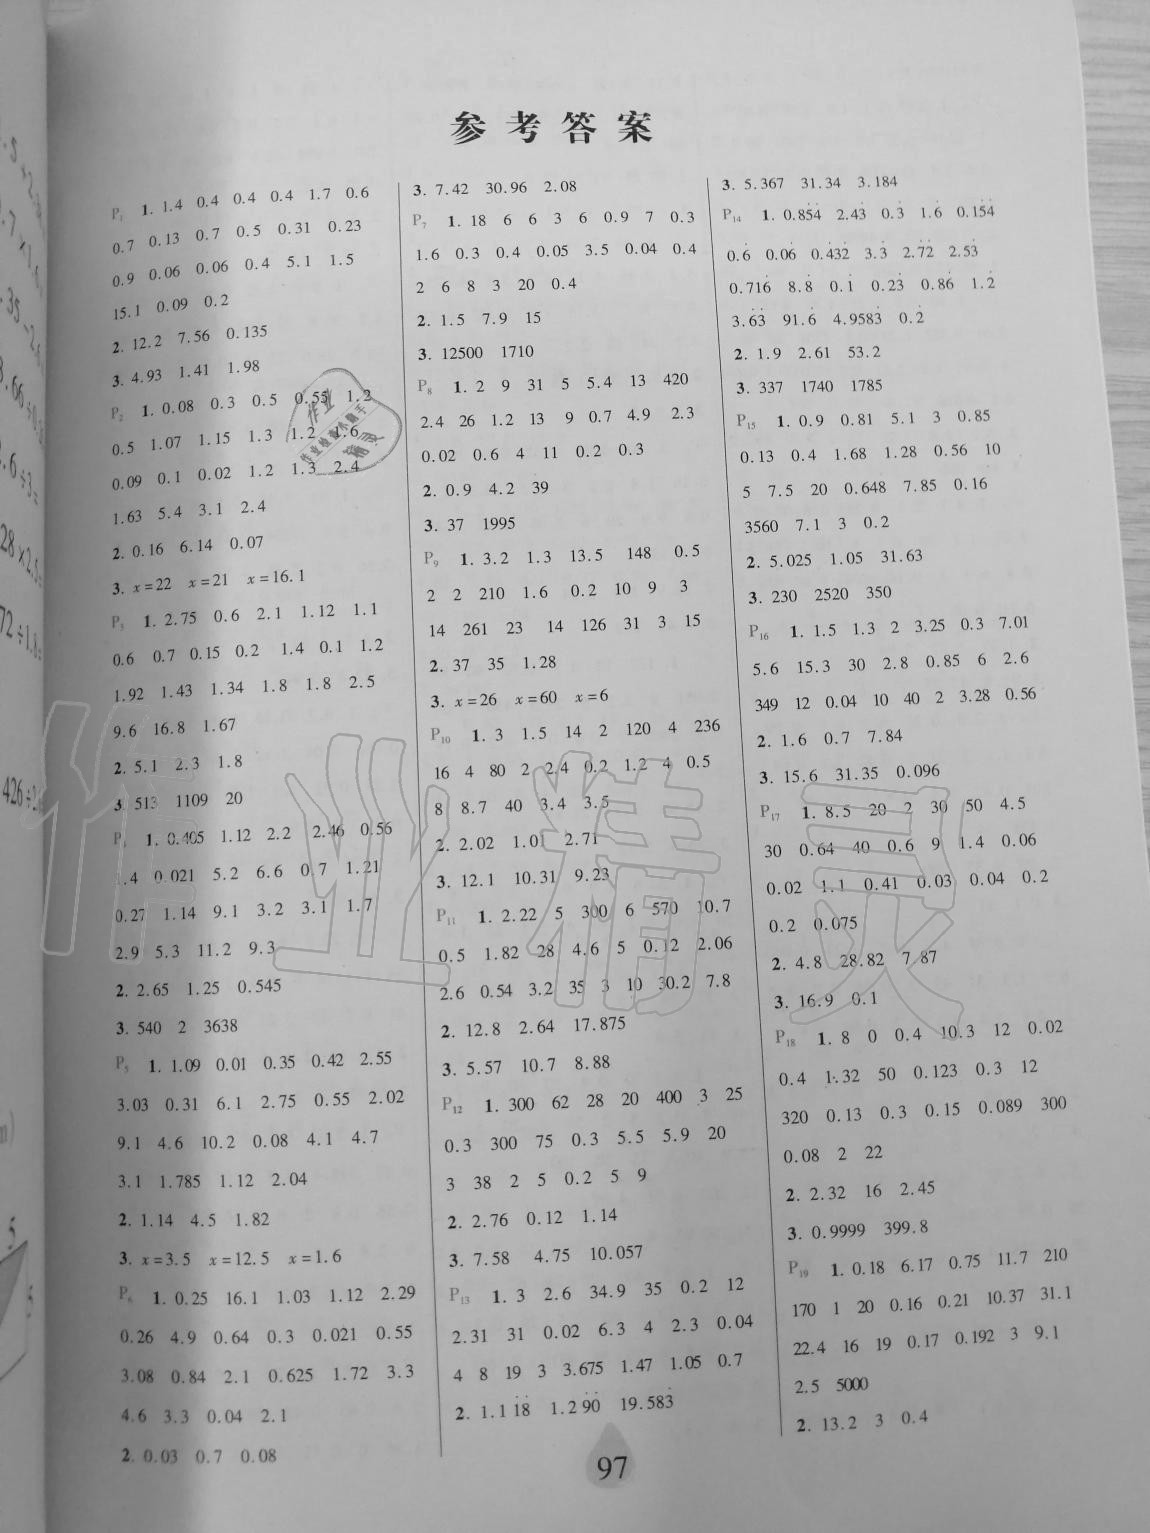 参考答案
P₁ 1. 1.4 0.4 0.4 0.4 1.7 0.6
0.7 0.13 0.7 0.5 0.31 0.23
0.9 0.06 0.06 0.4 5.1 1.5
15.1 0.09 0.2
2. 12.2 7.56 0.135
3. 4.93 1.41 1.98
P₂ 1. 0.08 0.3 0.5 0.55 1.2
0.5 1.07 1.15 1.3 1.2 1.6
0.09 0.1 0.02 1.2 1.3 2.4
1.63 5.4 3.1 2.4
2. 0.16 6.14 0.07
3. x=22 x=21 x=16.1
P₃ 1. 2.75 0.6 2.1 1.12 1.1
0.6 0.7 0.15 0.2 1.4 0.1 1.2
1.92 1.43 1.34 1.8 1.8 2.5
9.6 16.8 1.67
2. 5.1 2.3 1.8
3. 513 1109 20
P₄ 1. 0.405 1.12 2.2 2.46 0.56
1.4 0.021 5.2 6.6 0.7 1.21
0.27 1.14 9.1 3.2 3.1 1.7
2.9 5.3 11.2 9.3
2. 2.65 1.25 0.545
3. 540 2 3638
P₅ 1. 1.09 0.01 0.35 0.42 2.55
3.03 0.31 6.1 2.75 0.55 2.02
9.1 4.6 10.2 0.08 4.1 4.7
3.1 1.785 1.12 2.04
2. 1.14 4.5 1.82
3. x=3.5 x=12.5 x=1.6
P₆ 1. 0.25 16.1 1.03 1.12 2.29
0.26 4.9 0.64 0.3 0.021 0.55
3.08 0.84 2.1 0.625 1.72 3.3
4.6 3.3 0.04 2.1
2. 0.03 0.7 0.08
3. 7.42 30.96 2.08
P₇ 1. 18 6 6 3 6 0.9 7 0.3
1.6 0.3 0.4 0.05 3.5 0.04 0.4
2 6 8 3 20 0.4
2. 1.5 7.9 15
3. 12500 1710
P₈ 1. 2 9 31 5 5.4 13 420
2.4 26 1.2 13 9 0.7 4.9 2.3
0.02 0.6 4 11 0.2 0.3
2. 0.9 4.2 39
3. 37 1995
P₉ 1. 3.2 1.3 13.5 148 0.5
2 2 210 1.6 0.2 10 9 3
14 261 23 14 126 31 3 15
2. 37 35 1.28
3. x=26 x=60 x=6
P₁₀ 1. 3 1.5 14 2 120 4 236
16 4 80 2 2.4 0.2 1.2 4 0.5
8 8.7 40 3.4 3.5
2. 2.02 1.01 2.71
3. 12.1 10.31 9.23
P₁₁ 1. 2.22 5 300 6 570 10.7
0.5 1.82 28 4.6 5 0.12 2.06
2.6 0.54 3.2 35 3 10 30.2 7.8
2. 12.8 2.64 17.875
3. 5.57 10.7 8.88
P₁₂ 1. 300 62 28 20 400 3 25
0.3 300 75 0.3 5.5 5.9 20
3 38 2 5 0.2 5 9
2. 2.76 0.12 1.14
3. 7.58 4.75 10.057
P₁₃ 1. 3 2.6 34.9 35 0.2 12
2.31 31 0.02 6.3 4 2.3 0.04
4 8 19 3 3.675 1.47 1.05 0.7
2. 1.1̇18̇ 1.29̇0̇ 19.583̇
3. 5.367 31.34 3.184
P₁₄ 1. 0.85̇4̇ 2.43̇ 0.3̇ 1.6̇ 0.1̇54̇
0.6̇ 0.06̇ 0.4̇32̇ 3.3̇ 2.7̇2̇ 2.5̇3̇
0.716̇ 8.8̇ 0.1̇ 0.23̇ 0.86̇ 1.2̇
3.6̇3̇ 91.6̇ 4.9583̇ 0.2̇
2. 1.9 2.61 53.2
3. 337 1740 1785
P₁₅ 1. 0.9 0.81 5.1 3 0.85
0.13 0.4 1.68 1.28 0.56 10
5 7.5 20 0.648 7.85 0.16
3560 7.1 3 0.2
2. 5.025 1.05 31.63
3. 230 2520 350
P₁₆ 1. 1.5 1.3 2 3.25 0.3 7.01
5.6 15.3 30 2.8 0.85 6 2.6
349 12 0.04 10 40 2 3.28 0.56
2. 1.6 0.7 7.84
3. 15.6 31.35 0.096
P₁₇ 1. 8.5 20 2 30 50 4.5
30 0.64 40 0.6 9 1.4 0.06
0.02 1.1 0.41 0.03 0.04 0.2
0.2 0.075
2. 4.8 28.82 7.87
3. 16.9 0.1
P₁₈ 1. 8 0 0.4 10.3 12 0.02
0.4 1.32 50 0.123 0.3 12
320 0.13 0.3 0.15 0.089 300
0.08 2 22
2. 2.32 16 2.45
3. 0.9999 399.8
P₁₉ 1. 0.18 6.17 0.75 11.7 210
170 1 20 0.16 0.21 10.37 31.1
22.4 16 19 0.17 0.192 3 9.1
2.5 5000
2. 13.2 3 0.4
97
作业精灵